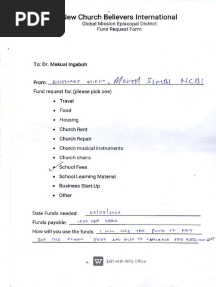 PDF
New Church Believers International
Global Mission Episcopal District
Fund Request Form
To: Dr. Makusi Ingaboh
From:
Fund request for (please pick one)
• Travel
• Food
• Housing
• Church Rent
• Church Repair
• Church musical instruments
• Church chairs
• School Fees
• School Learning Material
• Business Start-Up
• Other
Date Funds needed:
Funds payable:
How will you use the funds: I will use the fund to pay
for the school fees and also to
Edit with WPS Office